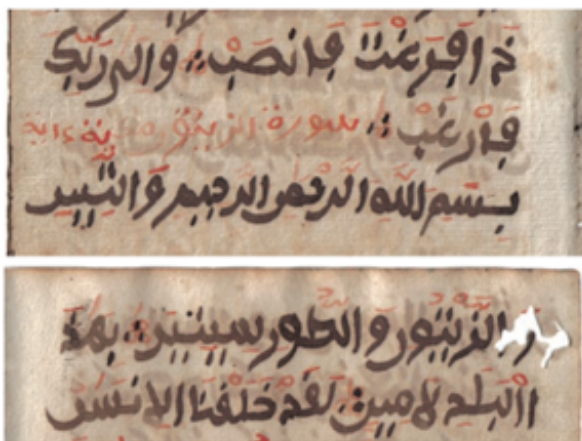 فرغت فانصب والى ربك
فارغب سورة الزيتون ءاية
بسم الله الرحمن الرحيم والتين
الزيتون والطور سينين بهذ
االبلد لامين لقد خلقنا الانسن